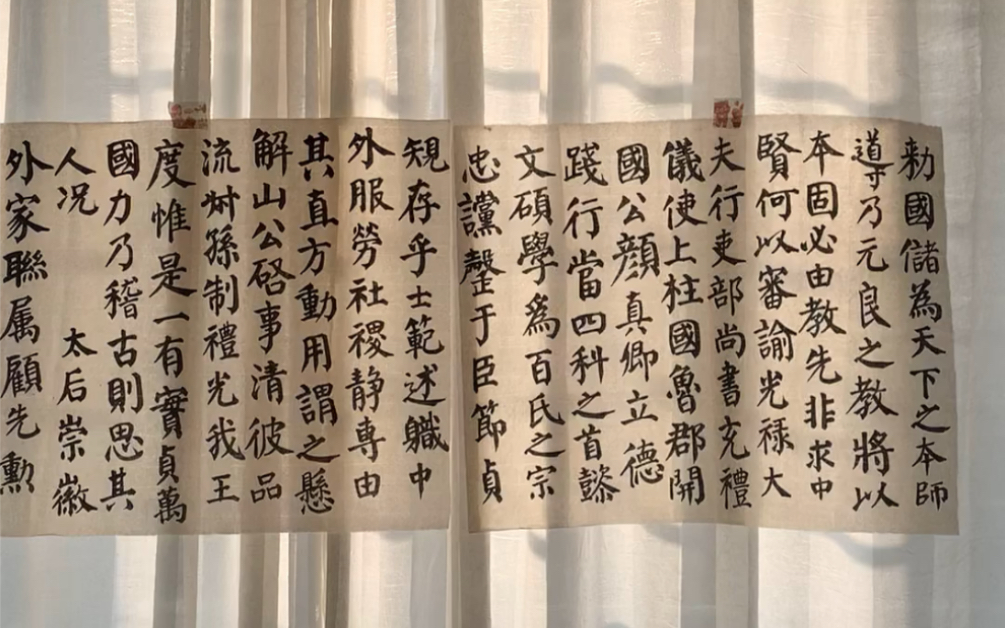 勅國儲為天下之本師
導乃元良之教將以
本固必由教先非求中
賢何以審諭光祿大
夫行吏部尚書充禮
儀使上柱國魯郡開
國公顏真卿立德
踐行當四科之首懿
文碩學為百氏之宗
忠讜罄于臣節貞
規存乎士範述軄中
外服勞社稷静專由
其直方動用謂之懸
解山公啓事清彼品
流叔孫制禮光我王
度惟是一有實貞萬
國力乃稽古則思其
人况 太后崇徽
外家聯属顧先勳